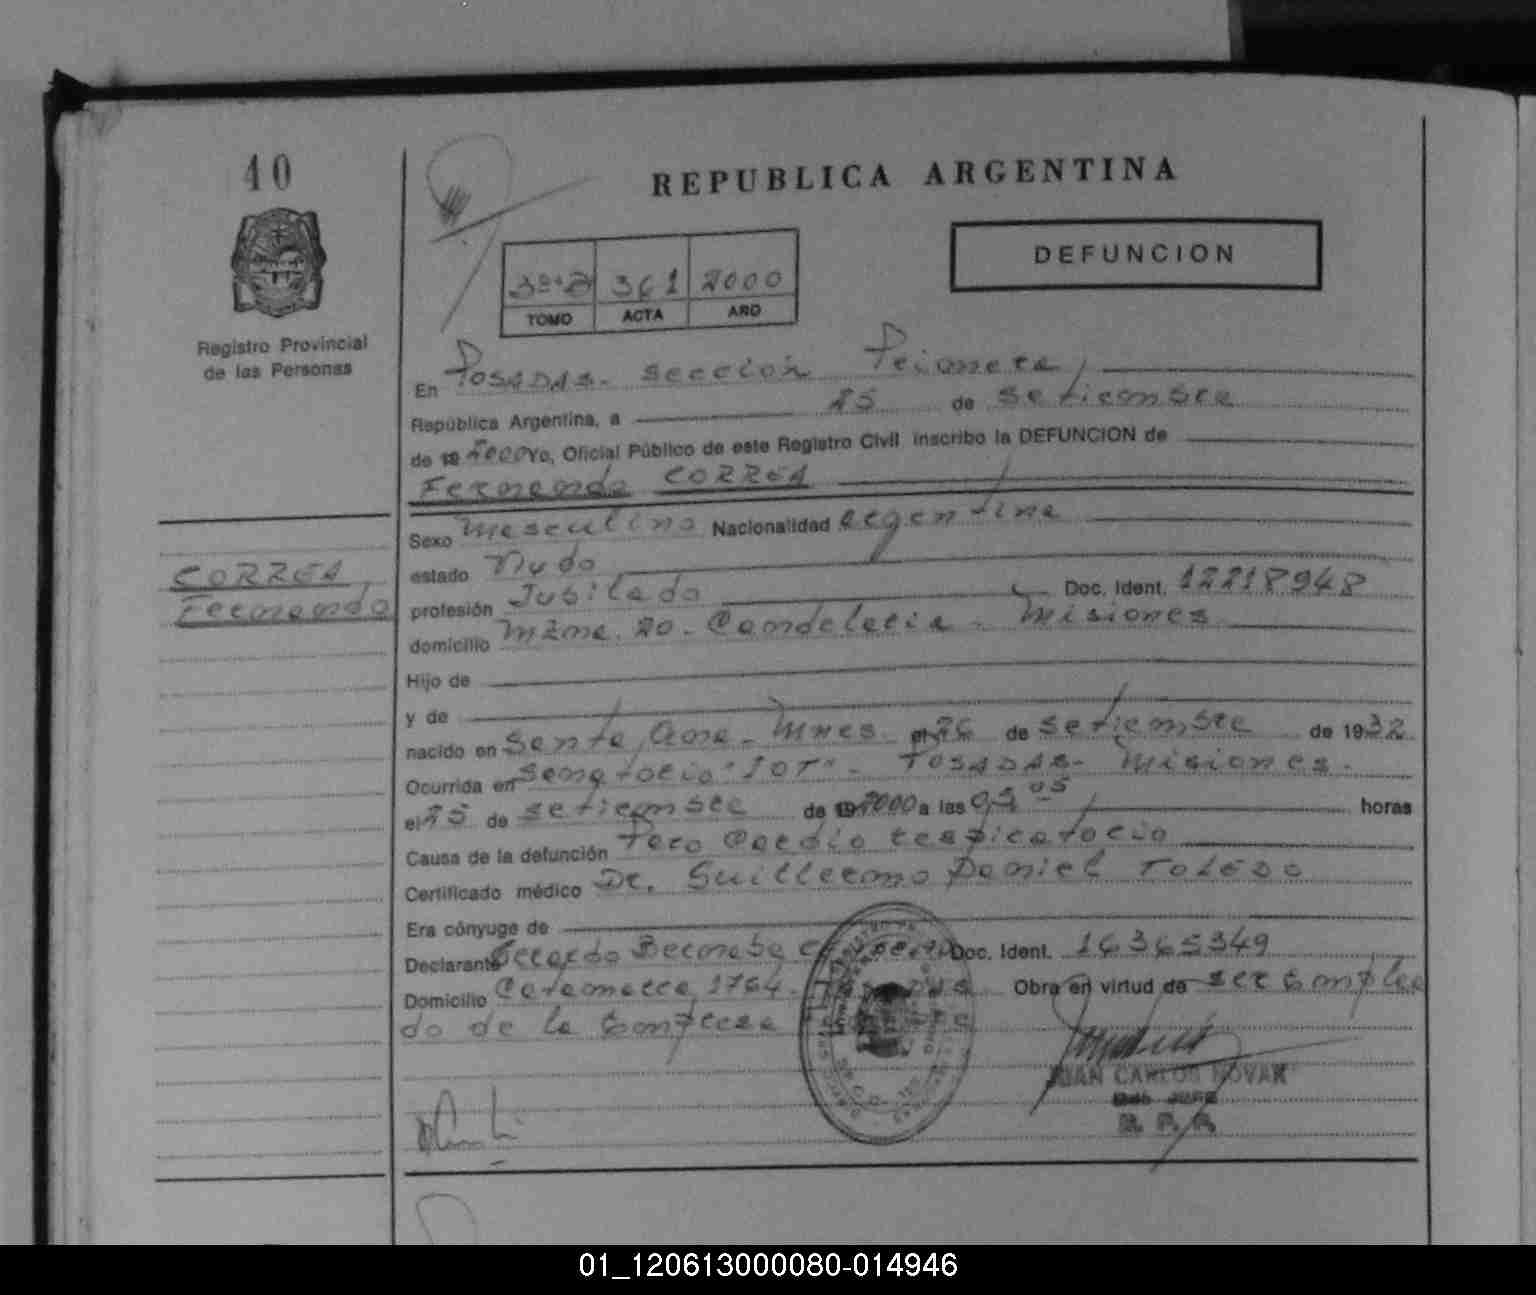 40
REPUBLICA ARGENTINA
DEFUNCION
3º-D 361 2000
TOMO ACTA AÑO
Registro Provincial
de las Personas
En POSADAS- Sección Primera
República Argentina, a 25 de Setiembre
de 19 2000 Yo, Oficial Público de este Registro Civil inscribo la DEFUNCION de
Fernando CORREA
Sexo Masculino Nacionalidad argentina
CORREA,
Fernando
estado Viudo
profesión Jubilado Doc. Ident. 12218948
domicilio Mzna. 20- Candelaria - Misiones
Hijo de
y de
nacido en Santa Ana- Mnes. el 26 de Setiembre de 1932
Ocurrida en Sanatorio "IOT"- POSADAS- Misiones.
el 25 de Setiembre de 19 2000 a las 09 05 horas
Causa de la defunción Paro Cardio respiratorio
Certificado médico Dr. Guillermo Daniel TOLEDO
Era cónyuge de
Declarante Gerardo Bernabe Doc. Ident. 16365349
Domicilio Catamarca 1764- Obra en virtud de ser Emplea
do de la Empresa
JUAN CARLOS NOVAK
R. P. P.
01_120613000080-014946